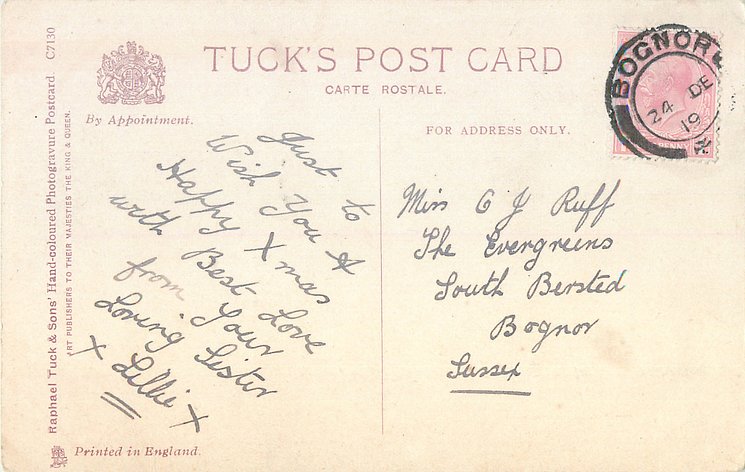 TUCK'S POST CARD
CARTE ROSTALE.
By Appointment.
FOR ADDRESS ONLY.
Raphael Tuck & Sons' Hand-coloured Photogravure Postcard C7130
ART PUBLISHERS TO THEIR MAJESTIES THE KING & QUEEN.
BOGNOR
24 DE
19
PENNY
Just to
Wish You A
Happy Xmas
with Best Love
from Your
Loving Sister
X Lillie X
Miss G J Ruff
The Evergreens
South Bersted
Bognor
Sussex
Printed in England.